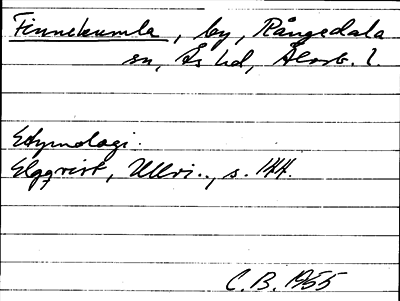 Finnekumla, by, Rångedala
sn, Ås hd, Älvsb. l.
Etymologi.
Elgqvist, Ullvi.., s. 144.
C. B. 1955